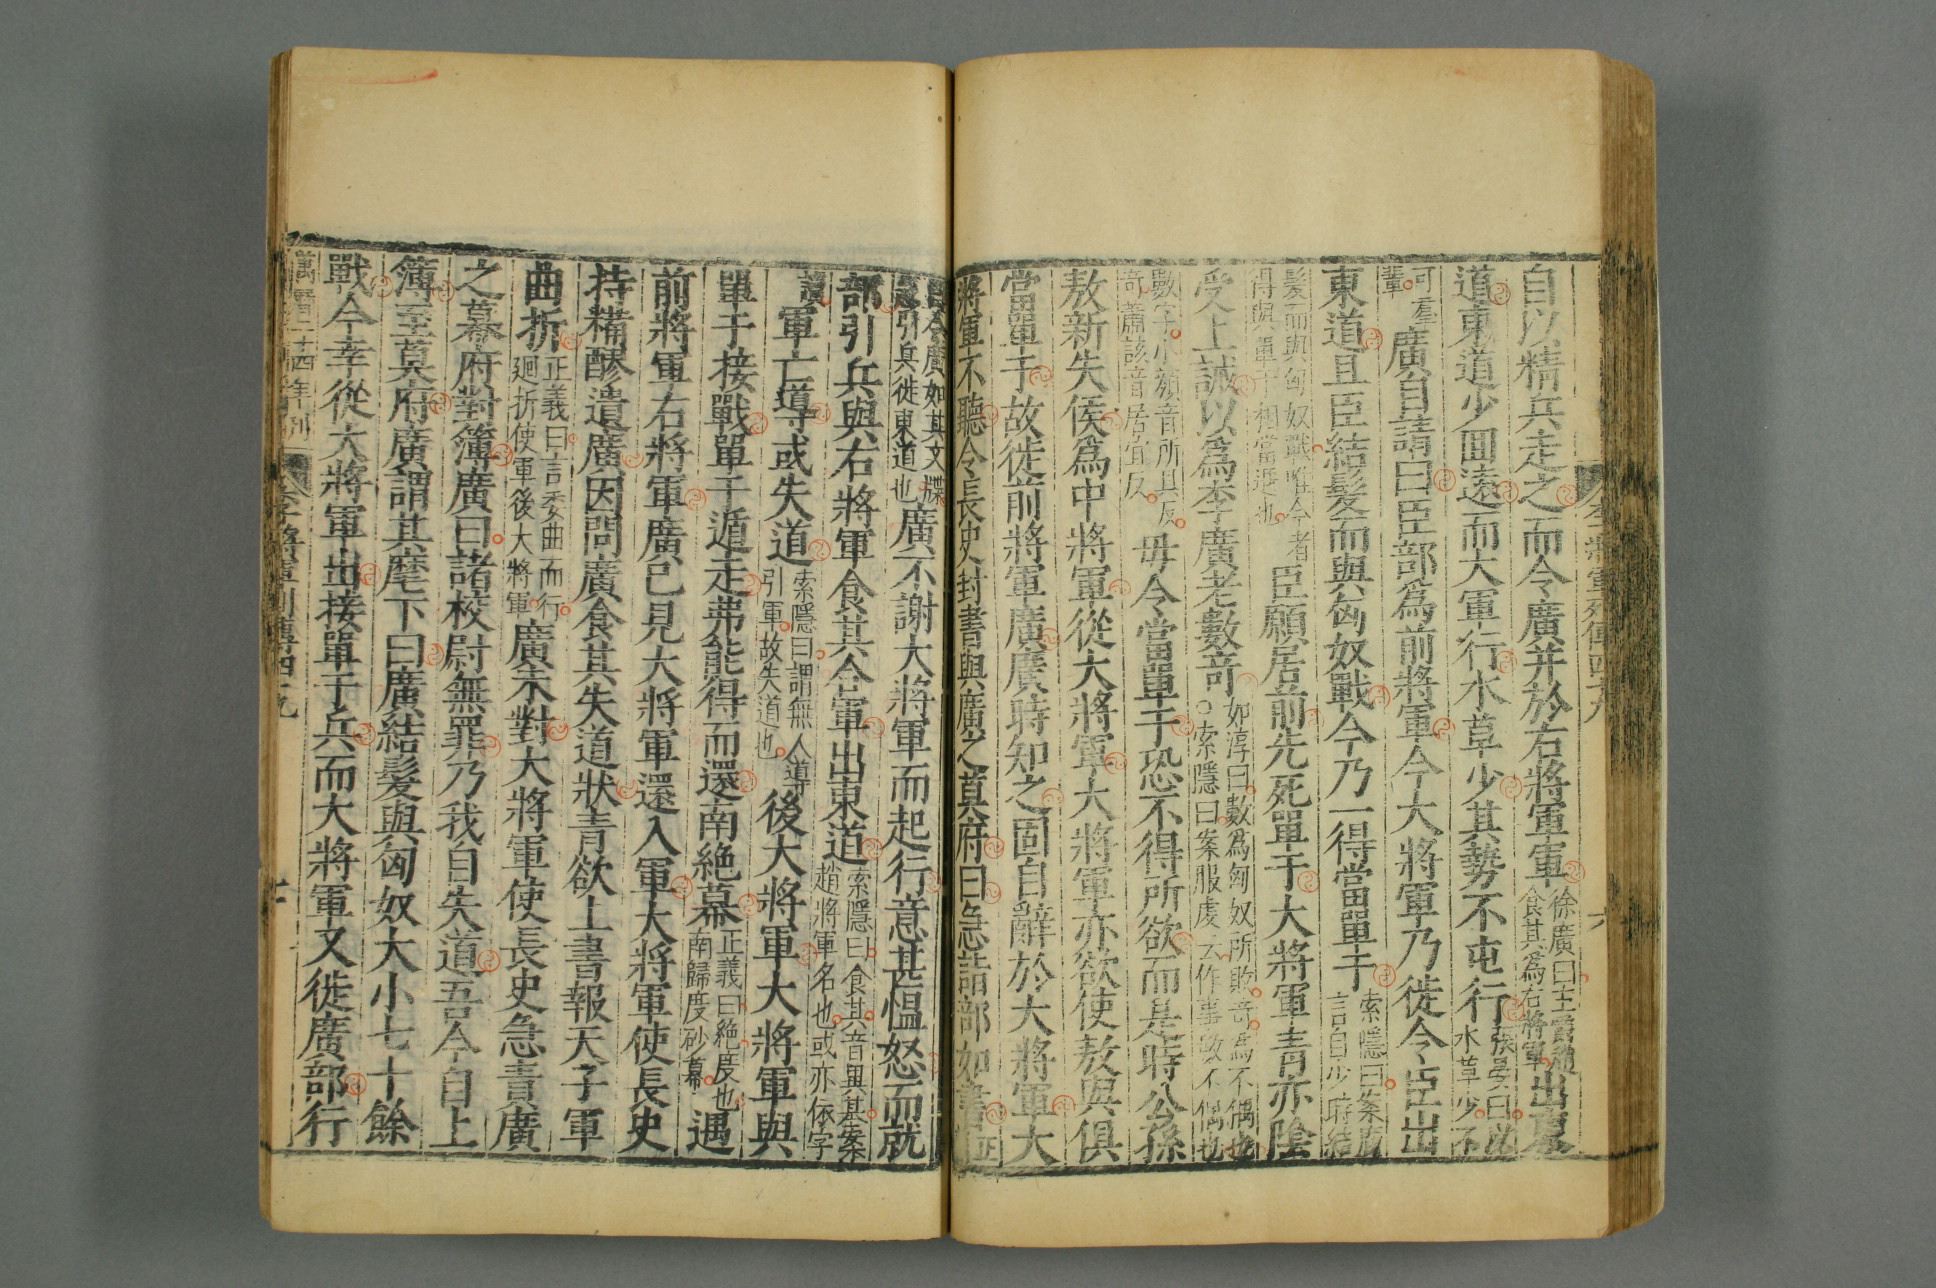 李將軍列傳四十九
六
自以精兵走之而令廣并於右將軍軍徐廣曰主爵趙食其爲右將軍出東
道東道少回遠而大軍行水草少其勢不屯行張晏曰以水草少不
可羣輩廣自請曰臣部爲前將軍今大將軍乃徙令臣出
東道且臣結髮而與匈奴戰今乃一得當單于索隱曰案廣言自少時結
髮而與匈奴戰唯今者得與單于相當遇也臣願居前先死單于大將軍青亦陰
受上誡以爲李廣老數奇如淳曰數爲匈奴所敗奇爲不偶也○索隱曰案服虔云作事數不偶也
數音小顏音所具反奇蕭該音居宜反毋令當單于恐不得所欲而是時公孫
敖新失侯爲中將軍從大將軍大將軍亦欲使敖與俱
當單于故徙前將軍廣廣時知之固自辭於大將軍大
將軍不聽令長史封書與廣之莫府曰急詣部如書正
令廣如其文牒引兵徙東道也廣不謝大將軍而起行意甚慍怒而就
部引兵與右將軍食其合軍出東道索隱曰食其音異基案趙將軍名也或亦依字
讀軍亡導或失道索隱曰謂無人導引軍故失道也後大將軍大將軍與
單于接戰單于遁走弗能得而還南絶幕正義曰絶度也南歸度砂幕遇
前將軍右將軍廣已見大將軍還入軍大將軍使長史
持糒醪遺廣因問廣食其失道狀青欲上書報天子軍
曲折正義曰言委曲而行廻折使軍後大將軍廣未對大將軍使長史急責廣
之幕府對簿廣曰諸校尉無罪乃我自失道吾今自上
簿至莫府廣謂其麾下曰廣結髮與匈奴大小七十餘
戰今幸從大將軍出接單于兵而大將軍又徙廣部行
萬曆二十四年刊
李將軍列傳四十九
七